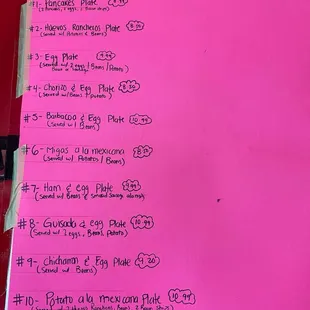 #1- Pancakes Plate
#2- Huevos Rancheros Plate 8.50
(Served w/ Potatoes & Beans)
#3- Egg Plate 9.99
(Served w/ 2 eggs / Beans / Potato)
#4- Chorizo & Egg Plate 8.50
(Served w/ Beans & Potato)
#5- Barbacoa & Egg Plate 10.99
(Served w/ Beans)
#6- Migas a la mexicana
(Served w/ Potatoes / Beans)
#7- Ham & egg Plate 9.99
(Served w/ Beans &
#8- Guisada & egg Plate 10.99
(Served w/ 2 eggs, Beans, Potato)
#9- Chicharron & Egg Plate 9.20
(Served w/ Beans)
#10- Potato a la mexicana Plate 10.99